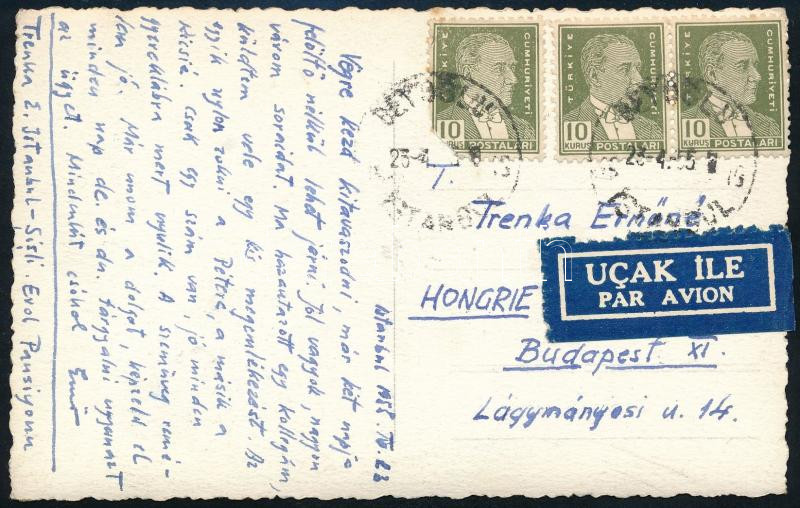 Istanbul 1955. IV. 23
Végre kezd kitavaszodni, már két napja
felöltő nélkül lehet járni. Jól vagyok, nagyon
várom soraidat. Ma hazautazott egy kollegám,
küldtem vele egy kis megemlékezést. Az
egyik nylon zokni a Péteré, a másik a
Kicsié. Csak egy szám van, jó minden
gyereklábra mert nyúlik. A szemüveg remé-
lem jó. Már unom a dolgot, képzeld el
minden nap de. és du. tárgyalni ugyanazt
az ügyet. Mindenkit csókol Ernő
Trenka E. Istanbul-Şişli Erol Pansiyonu
TÜRKİYE CUMHURİYETİ
10 KURUŞ POSTALARI
TÜRKİYE CUMHURİYETİ
10 KURUŞ POSTALARI
TÜRKİYE CUMHURİYETİ
10 KURUŞ POSTALARI
BEYOĞLU
23-4
İSTANBUL
BEYOĞLU
23-4-55
İSTANBUL
T.
Trenka Ernőné
UÇAK İLE
PAR AVION
HONGRIE
Budapest XI.
Lágymányosi u. 14.